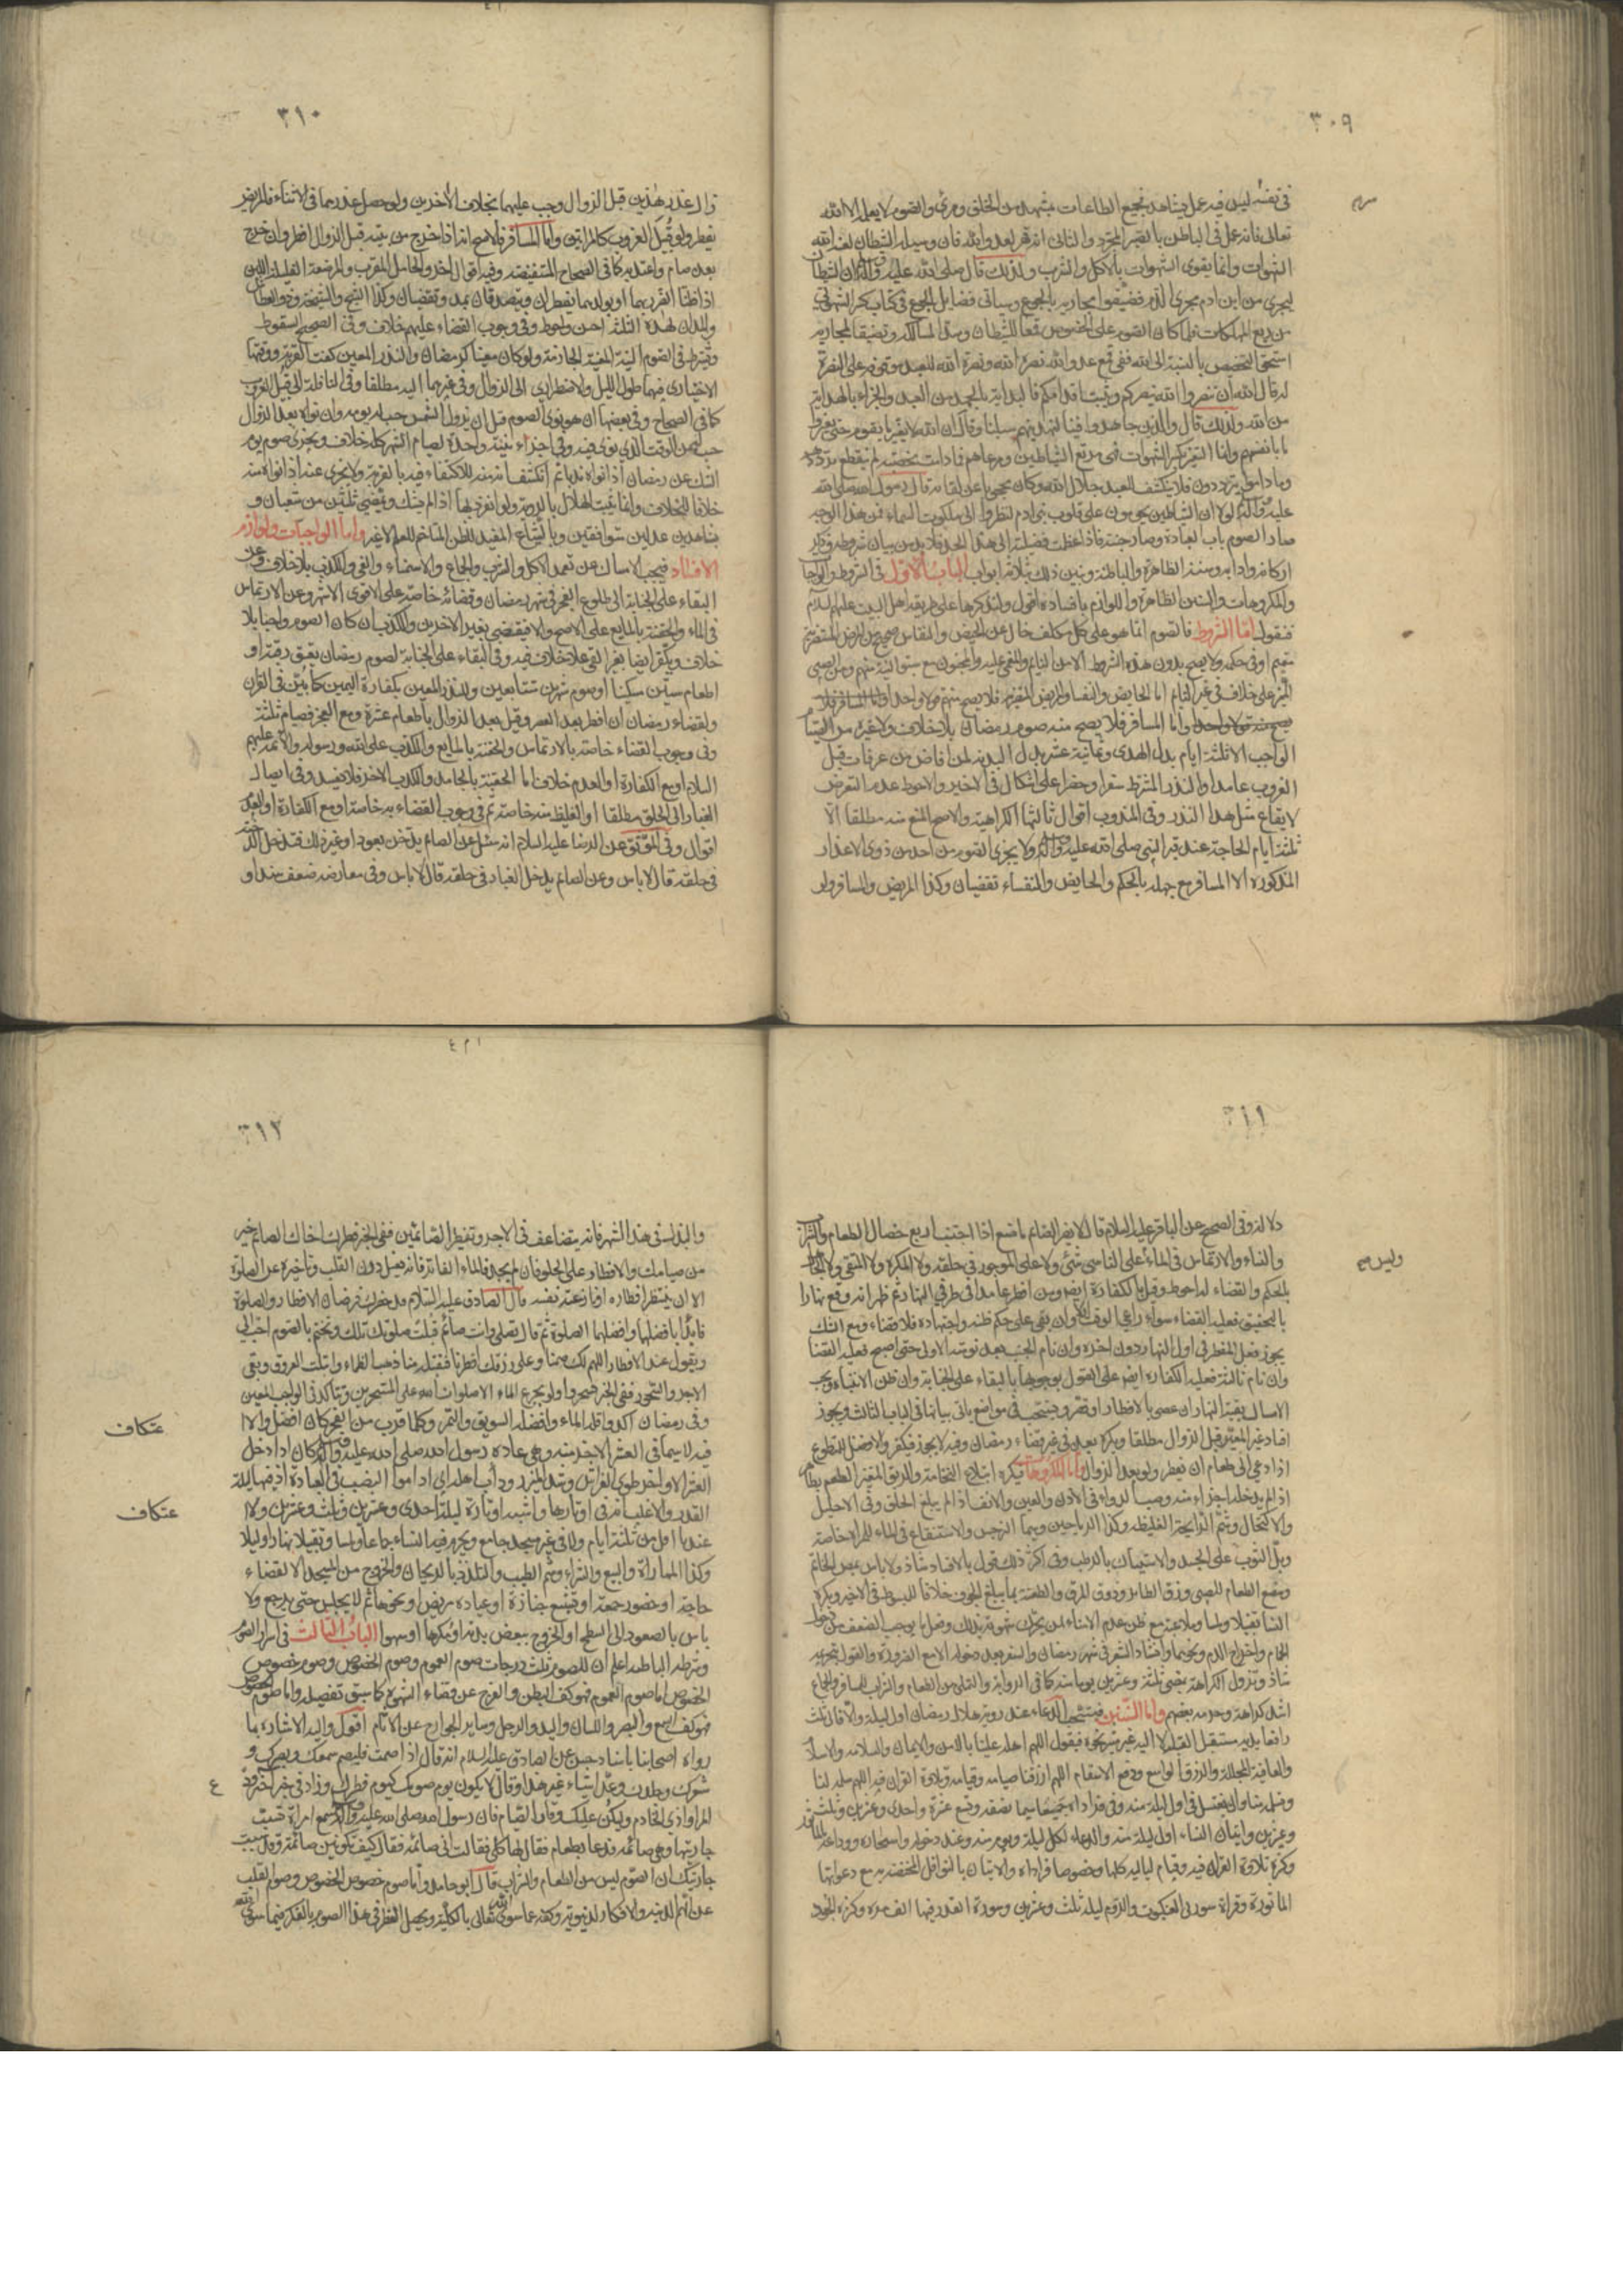 ٣٠٩
في نفسه ليس فيه عمل يشاهد فجميع الطاعات بمشهد من الخلق ومرئ والصوم لا يعلمه الا الله
تعالى فانه عمل في الباطن بالصبر المجرد والثاني انه قهر لعدو الله فان وسيلة الشيطان لعنه الله
الشهوات وانما يقوى الشهوات بالاكل والشرب ولذلك قال صلى الله عليه وآله ان الشيطان
ليجري من ابن ادم مجرى الدم فضيقوا مجاريه بالجوع وسياتي فضايل الجوع في كتاب كسر الشهوتين
من ربع المهلكات فلما كان الصوم على الخصوص قمعا للشيطان وسدا لمسالكه وتضييقا لمجاريه
استحق التخصيص بالنسبة الى الله ففي قمع عدو الله نصرة الله ونصرة الله للعبد موقوفة على النصرة
له قال الله ان تنصروا الله ينصركم ويثبت اقدامكم فالبداية بالجهد من العبد والجزاء بالهداية
من الله ولذلك قال والذين جاهدوا فينا لنهدينهم سبلنا وقال ان الله لا يغير ما بقوم حتى يغيروا
ما بانفسهم وانما التغير بكسر الشهوات فهي مرتع الشياطين ومرعاهم فما دامت مخصبة لم ينقطع ترددهم
وما داموا يترددون فلا ينكشف للعبد جلال الله وكان محجوبا عن لقائه قال رسول الله صلى الله
عليه وآله لولا ان الشياطين يحومون على قلوب بني ادم لنظروا الى ملكوت السماء فمن هذا الوجه
صار الصوم باب العبادة وصار جنة فاذا عظمت فضيلته الى هذا الحد فلا بد من بيان شروطه وذكر
اركانه وادابه وسننه الظاهرة والباطنة ونبين ذلك بثلاثة ابواب الباب الاول في الشروط والواجبات
والمكروهات والسنن الظاهرة واللوازم بافساده اقول ولنذكرها على طريقة اهل البيت عليهم السلام
فنقول اما الشروط فالصوم انما هو على كل مكلف خال عن الحيض والنفاس صحيح من المرض
مقيم او في حكمه ولا يصح بدون هذه الشروط الا من النايم والمغمى عليه والمجنون مع سبق النية منهم ومن الصبي
المميز على خلاف في غير النايم اما الحايض والنفساء والمريض المتضرر فلا يصح منهم قولا واحدا واما المسافر فلا
يصح منه قولا واحدا واما المسافر فلا يصح منه صوم رمضان بلا خلاف ولا غيره من الصيام
الواجب الا ثلثة ايام بدل الهدي وثمانية عشر بدل البدنة لمن افاض من عرفات قبل
الغروب عامدا والنذر المشترط سفرا وحضرا على اشكال في الاخير والاحوط عدم التعرض
لايقاع مثل هذا النذر وفي المندوب اقوال ثالثها الكراهية والاصح المنع منه مطلقا الا
ثلثة ايام الحاجة عند قبر النبي صلى الله عليه وآله ولا يجزى الصوم من احد من ذوي الاعذار
المذكورة الا المسافر مع جهله بالحكم والحايض والنفساء تقضيان وكذا المريض والمسافر ولو
٣١٠
زال عذر هذين قبل الزوال وجب عليهما بخلاف الأخرين ولو حصل عذرهما في الاثناء فالمريض
يفطر ولو قبيل الغروب كالمراتين واما المسافر فالاصح انه اذا خرج من بيته قبل الزوال افطر وان خرج
بعده صام واعتد به كما في الصحاح المستفيضة وفيه اقوال اخر والحامل المقرب والمرضعة القليلة اللبن
اذا ظنتا الضرر بهما او بولدهما تفطران وتتصدقان بمد وتقضيان وكذا الشيخ والشيخة وذو العطاش
والمدان لهذه الثلثة احسن واحوط وفي وجوب القضاء عليهم خلاف وفي الصحيح السقوط
ويشترط في الصوم النية المعينة الجازمة ولو كان معينا كرمضان والنذر المعين كفت القربة ووقتها
الاختياري فيهما طول الليل والاضطراري الى الزوال وفي غيرهما اليه مطلقا وفي النافلة الى قبيل الغروب
كما في الصحاح وفي بعضها ان هو نوى الصوم قبل ان تزول الشمس حسب له يومه وان نواه بعد الزوال
حسب له من الوقت الذي نوى فيه وفي اجزاء نية واحدة لصيام الشهر كله خلاف ويجزى صوم يوم
الشك عن رمضان اذا نواه ندبا ثم انكشف انه منه للاكتفاء فيه بالقربة ولا يجزى عنه اذا نواه منه
خلافا للخلاف وانما يثبت الهلال بالرؤية ولو انفرد بها اذا لم يشك وبمضي ثلثين من شعبان و
بشاهدين عدلين متوافقين وبالشياع المفيد للظن المتاخم للعلم لا غير واما الواجبات ولوازم
الافساد فيجب الامساك عن تعمد الاكل والشرب والجماع والاستمناء والقي والكذب بلا خلاف وعن
البقاء على الجنابة الى طلوع الفجر في شهر رمضان وقضائه خاصة على الاقوى الاشهر وعن الارتماس
في الماء والحقنة بالمايع على الاصح والا فيقضي بغير الاخرين والكذب ان كان الصوم واجبا بلا
خلاف ويكفر ايضا بغير القي على خلاف فيه وفي البقاء على الجنابة لصوم رمضان بعتق رقبة او
اطعام ستين مسكينا او صوم شهرين متتابعين وللنذر المعين بكفارة اليمين كما يبين في القران
ولقضاء رمضان ان افطر بعد العصر وقيل بعد الزوال باطعام عشرة ومع العجز فصيام ثلثة
وفي وجوب القضاء خاصة بالارتماس والحقنة بالمايع والكذب على الله ورسوله والائمة عليهم
السلام او مع الكفارة او العدم خلاف اما الحقنة بالجامد والكذب الاخر فلا يفسد وفي ايصال
الغبار الى الحلق مطلقا او الغليظ منه خاصة ثم في وجوب القضاء به خاصة او مع الكفارة او العدم
اقوال وفي الموثق عن الرضا عليه السلام انه سئل عن الصائم يتدخن بعود او غير ذلك فتدخل الدخنة
في حلقه قال لا باس وعن الصائم يدخل الغبار في حلقه قال لا باس وفي معارضه ضعف سندا و
٣١١
دلالة وفي الصحيح عن الباقر عليه السلام قال لا يضر الصائم ما صنع اذا اجتنب اربع خصال الطعام والشراب
والنساء والارتماس في الماء ولا على الناسي شئ ولا على الموجور في حلقه ولا المكره ولا المتقي ولا الجاهل
بالحكم والقضاء له احوط وقيل بالكفارة ايضا ومن افطر عامدا في طرفي النهار ثم ظهر انه وقع نهارا
بالتحقيق فعليه القضاء سواء راعى الوقت ام لا وان بقي على حكم ظنه واجتهاده فلا قضاء ومع الشك
يجوز فعل المفطر في اول النهار دون اخره وان نام الجنب بعد نومته الاولى حتى اصبح فعليه القضا
وان نام ثالثة فعليه الكفارة ايضا على القول بوجوبها بالبقاء على الجنابة وان ظن الانتباه ويجب
الامساك بقية النهار ان عصى بالافطار او قصر ويستحب في مواضع ياتي بيانها في الباب الثالث ويجوز
افساد غير المعين قبل الزوال مطلقا ويكره بعده في غير قضاء رمضان وفيه لا يجوز فيكفر والافضل للمتطوع
اذا دعي الى طعام ان يفطر ولو بعد الزوال واما المكروهات فيكره ابتلاع النخامة والريق المتغير الطعم بطاهر
اذا لم يدخله اجزاء منه وصب الدواء في الاذن والعين والانف اذا لم يبلغ الحلق وفي الاحليل
والاكتحال وشم الرايحة الغليظة وكذا الرياحين وسيما النرجس والاستنقاع في الماء للمراة خاصة
وبل الثوب على الجسد والاستياك بالرطب وفي اكثر ذلك قول بالافساد شاذ ولا باس بمص الخاتم
ومضغ الطعام للصبي وزق الطائر وذوق المرق والطعنة بما يبلغ الجوف خلافا للمبسوط في الاخير ويكره
النساء تقبيلا ولمسا وملاعبة مع ظن عدم الامناء لمن يحرك شهوته بذلك وفعل ما يوجب الضعف من دخول
الحمام واخراج الدم ونحوهما وانشاد الشعر في شهر رمضان والسفر بعد دخوله الا مع الضرورة والقول بتحريمه
شاذ وتزول الكراهة بمضي ثلثة وعشرين يوما منه كما في الرواية والتملي من الطعام والشراب للمسافر والجماع
اشد كراهة وحرمه بعضهم واما السنن فيستحب الدعاء عند رؤية هلال رمضان اول ليلة والا فالى ثلث
رافعا يديه مستقبل القبلة لا اليه غير مشير نحوه فيقول اللهم اهله علينا بالامن والايمان والسلامة والاسلام
والعافية المجللة والرزق الواسع ودفع الاسقام اللهم ارزقنا صيامه وقيامه وتلاوة القران فيه اللهم سلمه لنا
وعشرين واتيان النساء اول ليلة منه والدعاء لكل ليلة ويوم منه وعند دخوله واسحاره ووداعه بالماثور
وكثرة تلاوة القران فيه وقيام لياليه كلها وخصوصا فراداه والاتيان بالنوافل المختصة به مع دعواتها
الماثورة وقراءة سورتي العنكبوت والروم ليلة ثلث وعشرين وسورة القدر فيها الف مرة وكثرة الجود
٣١٢
والبذل سنن هذا الشهر فانه يتضاعف في الاجر وتفطير الصائمين ففي الخبر فطرك اخاك الصائم خير
من صيامك والافطار على الحلو فان لم يجد فالماء الفاتر فانه يغسل درن القلب وتاخيره عن الصلوة
الا ان ينتظر افطاره او نازعته نفسه قال الصادق عليه السلام قد حضرك فرضان الافطار والصلوة
فابدا بافضلهما وافضلهما الصلوة ثم قال تصلي وانت صائم فتكتب صلوتك تلك وتختم بالصوم احب الي
ويقول عند الافطار اللهم لك صمنا وعلى رزقك افطرنا فتقبله منا ذهب الظماء وابتلت العروق وبقي
الاجر والتسحر ففي الخبر تسحروا ولو بجرع الماء الا صلوات الله على المتسحرين ويتاكد في الواجب المعين
وفي رمضان اكد واقله الماء وافضله السويق والتمر وكلما قرب من الفجر كان افضل والا
عتكاف
فيه لا سيما في العشر الاخر منه وهي عادة رسول الله صلى الله عليه وآله كان اذا دخل
العشر الاواخر طوى الفراش وشد الميزر ودأب اهله اي اداموا النصب في العبادة اذ فيها ليلة
القدر والاغلب انها في اوتارها واشبه اوتاره ليلة احدى وعشرين وثلث وعشرين ولا
عتكاف
عندنا اقل من ثلثة ايام ولا في غير مسجد جامع ويحرم فيه النساء جماعا ولمسا وتقبيلا نهارا وليلا
وكذا المماراة والبيع والشراء وشم الطيب والتلذذ بالريحان والخروج من المسجد الا لقضاء
حاجة او حضور جمعة او تشييع جنازة او عيادة مريض ونحوها ثم لا يجلس حتى يرجع ولا
باس بالصعود الى السطح او الخروج ببعض بدنه او مكرها او سهوا الباب الثالث في اسرار الصوم
وشرطه الباطنة اعلم ان للصوم ثلث درجات صوم العموم وصوم الخصوص وصوم خصوص
الخصوص اما صوم العموم فهو كف البطن والفرج عن قضاء الشهوة كما سبق تفصيله واما صوم الخصوص
فهو كف السمع والبصر واللسان واليد والرجل وساير الجوارح عن الاثام اقول واليه الاشارة بما
رواه اصحابنا باسناد حسن عن الصادق عليه السلام انه قال اذا صمت فليصم سمعك وبصرك و
شعرك وجلدك وعد اشياء غير هذا وقال لا يكون يوم صومك كيوم فطرك وزاد في خبر اخر ودع
المراء واذى الخادم وليكن عليك وقار الصيام فان رسول الله صلى الله عليه وآله سمع امراة تسب
جاريتها وهي صائمة فدعا بطعام فقال لها كلي فقالت اني صائمة فقال كيف تكونين صائمة وقد سببت
جاريتك ان الصوم ليس من الطعام والشراب قال ابو حامد واما صوم خصوص الخصوص وصوم القلب
عن الهمم الدنية والافكار الدنيوية وكفه عما سوى الله تعالى بالكلية ويحصل الفطر في هذا الصوم بالفكر فيما سوى الله